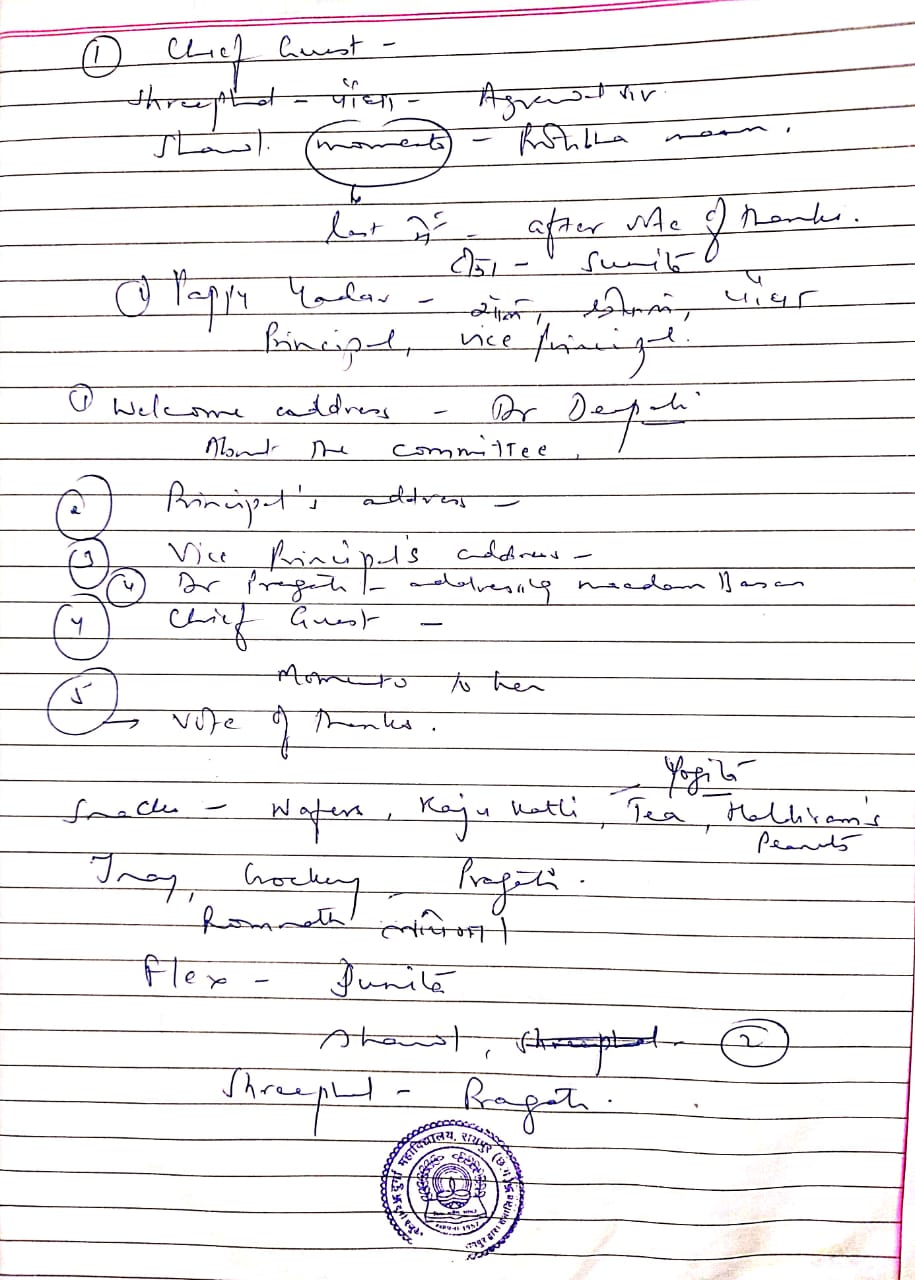 ① Chief Guest -
Shreephal - पौधा - Agrawal sir
Shawl. momento - maam.
last में - after vote of thanks.
- Sunita
① Pappy Yadav - शॉल, श्रीफल, पौधा
Principal, vice principal.
① Welcome address - Dr Deepali
About the committee,
② Principal's address -
③ Vice Principal's address -
④ Dr Pragati - addressing madam
4 Chief Guest -
Momento to her
5 → Vote of thanks.
Yogita
Snacks - Wafers, Kaju Katli, Tea, Haldiram's
Peanuts
Tray, Crockery - Pragati.
Flex - Sunita
Shawl, Shreephal - ②
Shreephal - Pragati.
दुर्गा महाविद्यालय, रायपुर (छ.ग.)